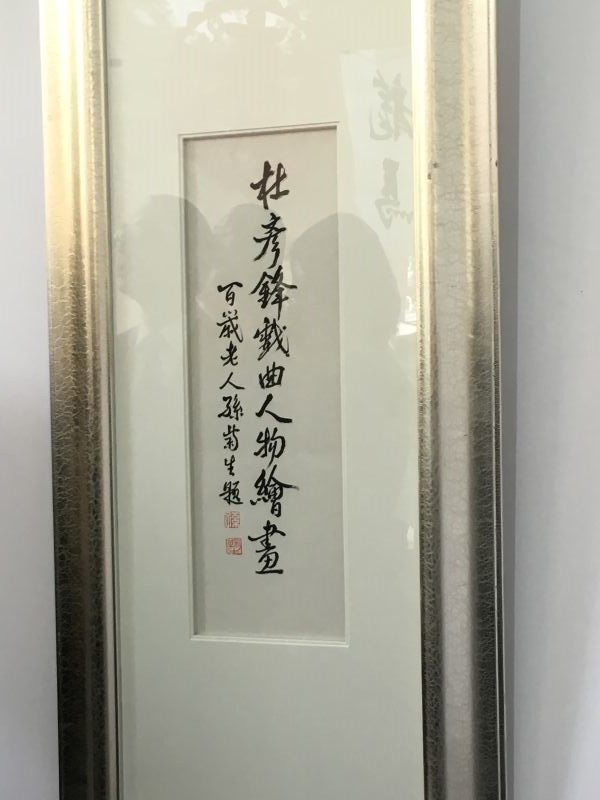 杜彥鋒戲曲人物繪畫
百歲老人孫菊生題